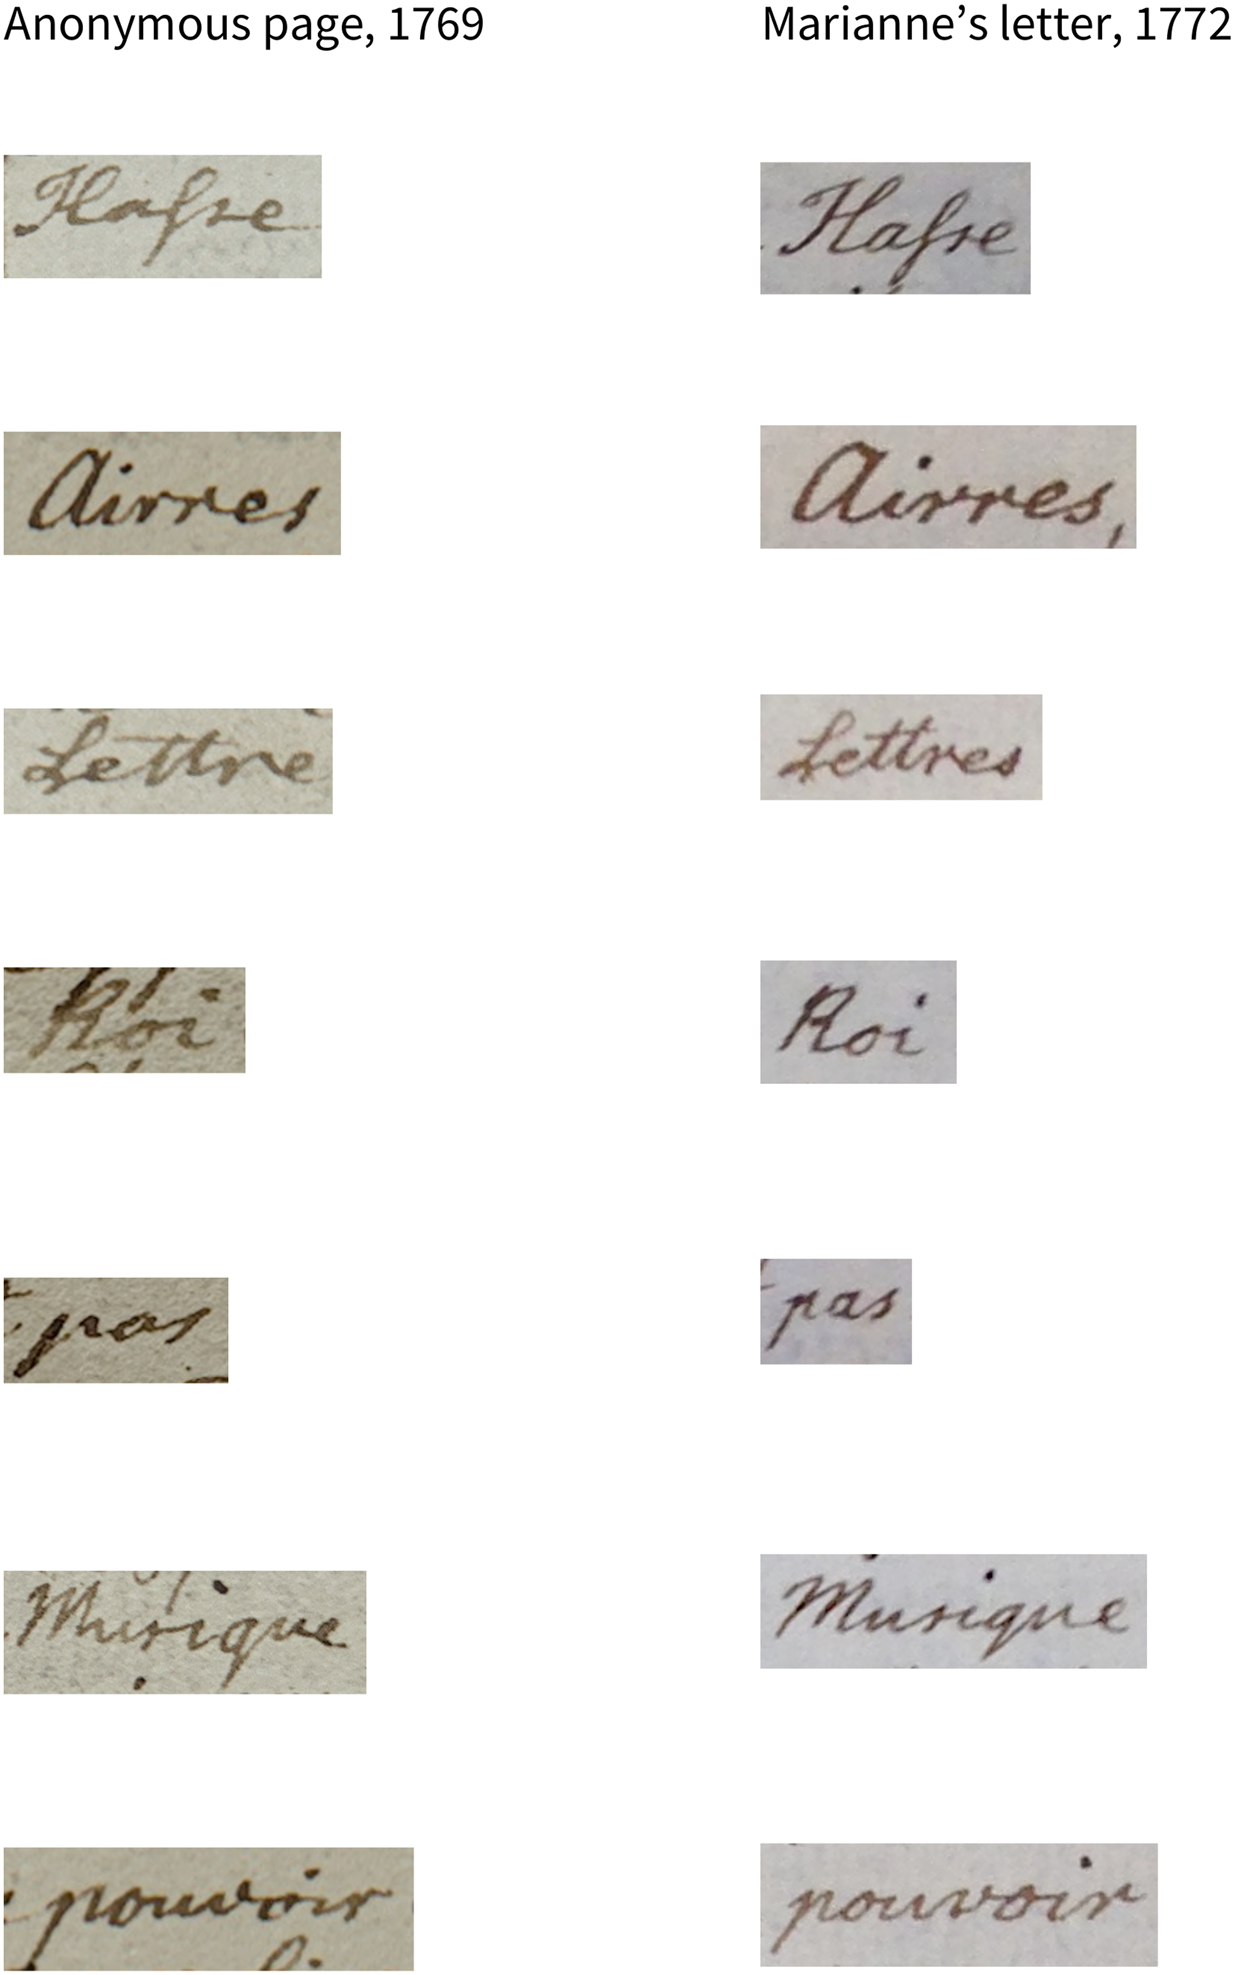 Anonymous page, 1769 Marianne’s letter, 1772
Haſse Haſse
Airres Airres,
Lettre Lettres
Roi Roi
pas pas
Musique Musique
pouvoir pouvoir